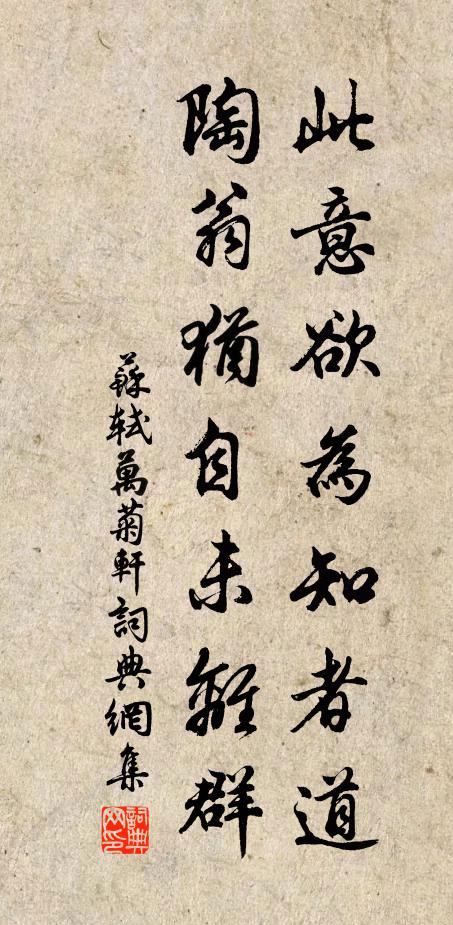 此意欲為知者道
陶翁猶自未離群
蘇軾萬菊軒詞典網集
詞典網印